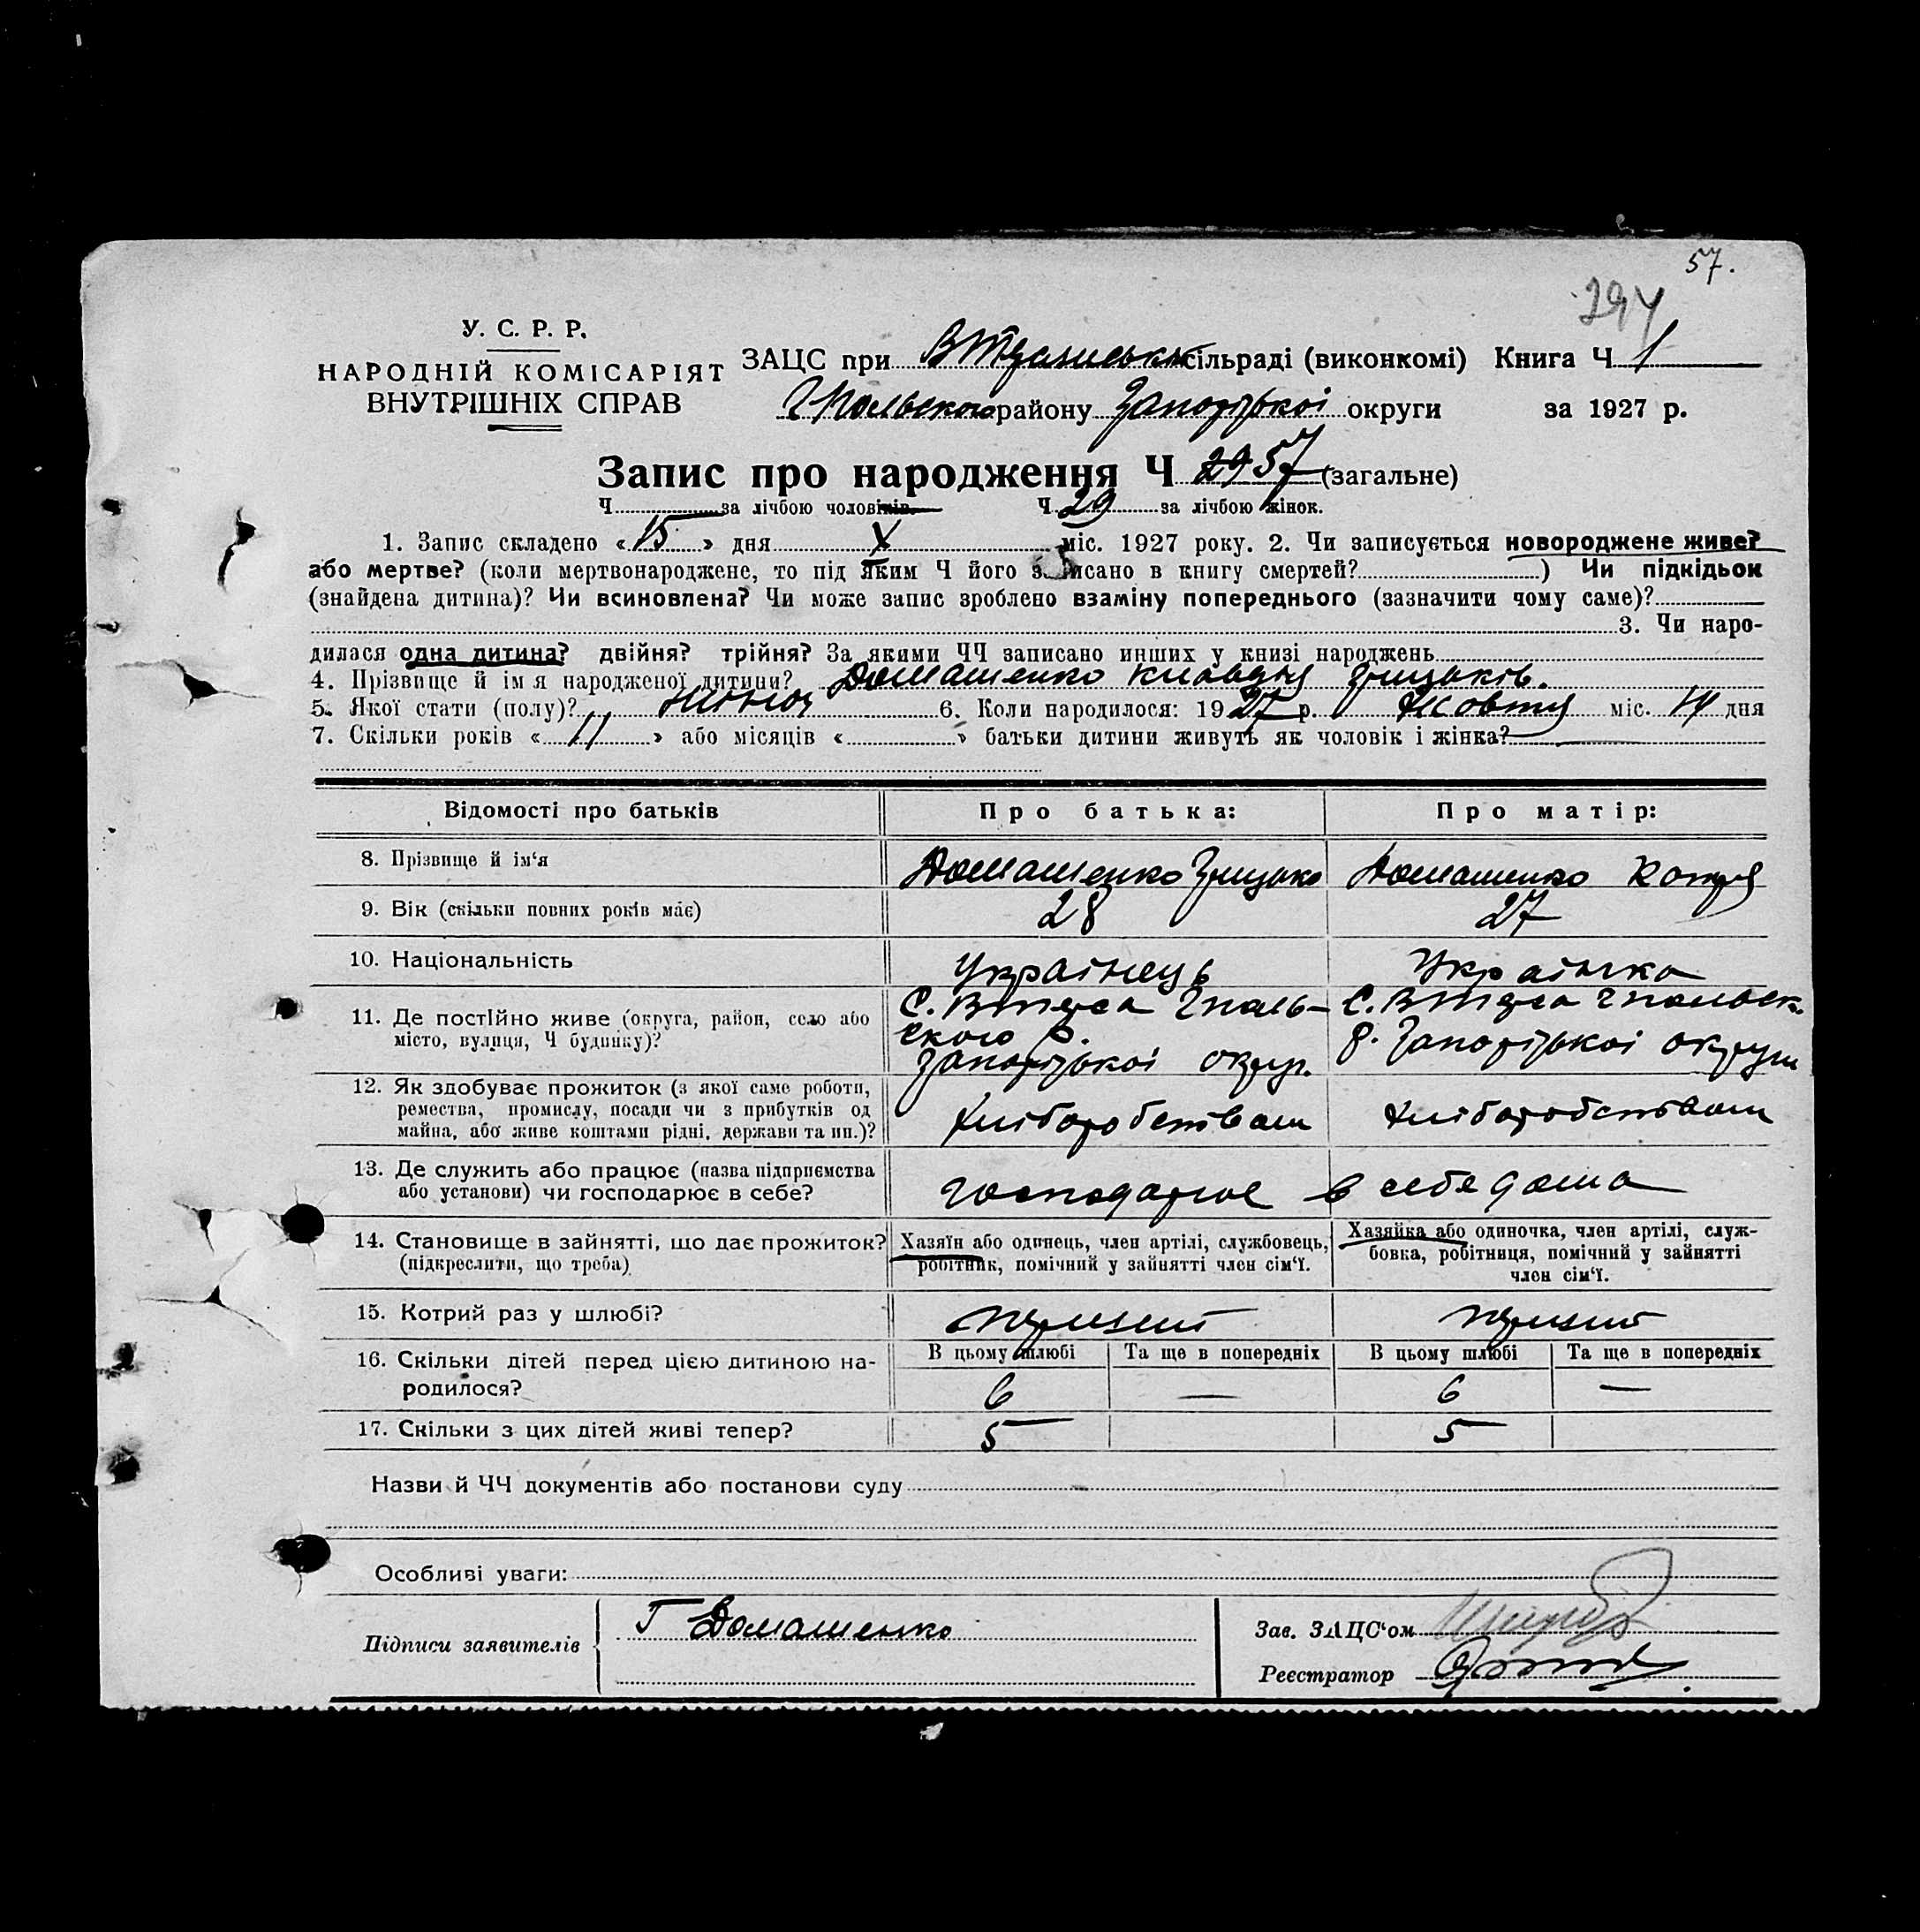 57.
294
У. С. Р. Р.
НАРОДНІЙ КОМІСАРІЯТ
ВНУТРІШНІХ СПРАВ
ЗАЦС при сільраді (виконкомі) Книга Ч 1
району Запорізької округи за 1927 р.
Запис про народження Ч 29 57 (загальне)
Ч за лічбою чоловіків. Ч 29 за лічбою жінок.
1. Запис складено «15» дня X міс. 1927 року. 2. Чи записується новороджене живе?
або мертве? (коли мертвонароджене, то під яким Ч його записано в книгу смертей? ) Чи підкідьок
(знайдена дитина)? Чи всиновлена? Чи може запис зроблено взаміну попереднього (зазначити чому саме)?
3. Чи наро-
дилася одна дитина? двійня? трійня? За якими ЧЧ записано инших у книзі народжень
4. Прізвище й ім'я народженої дитини? Домашенко Клавдія Грицьків.
5. Якої стати (полу)? жіноч 6. Коли народилося: 1927 р. Жовтня міс. 14 дня
7. Скільки років «11» або місяців « » батьки дитини живуть як чоловік і жінка?
Відомості про батьків Про батька: Про матір:
8. Прізвище й ім'я Домашенко Грицько Домашенко Котря
9. Вік (скільки повних років має) 28 27
10. Національність Українець Українка
11. Де постійно живе (округа, район, село або місто, вулиця, Ч будинку)?
С. Гполь-
ського р.
Запорізької округ.
С. Гпольськ.
р. Запорізької округи
12. Як здобуває прожиток (з якої саме роботи,
ремества, промислу, посади чи з прибутків од
майна, або живе коштами рідні, держави та ин.)?
хліборобством хліборобством
13. Де служить або працює (назва підприємства
або установи) чи господарює в себе?
господарює в себе дома
14. Становище в зайнятті, що дає прожиток?
(підкреслити, що треба)
Хазяїн або одинець, член артілі, службовець,
робітник, помічний у зайнятті член сім'ї.
Хазяйка або одиночка, член артілі, служ-
бовка, робітниця, помічний у зайнятті
член сім'ї.
15. Котрий раз у шлюбі? перший перший
16. Скільки дітей перед цією дитиною на-
родилося?
В цьому шлюбі Та ще в попередніх В цьому шлюбі Та ще в попередніх
6 — 6 —
17. Скільки з цих дітей живі тепер? 5 5
Назви й ЧЧ документів або постанови суду
Особливі уваги:
Підписи заявителів Г Домашенко
Зав. ЗАЦС'ом
Реєстратор